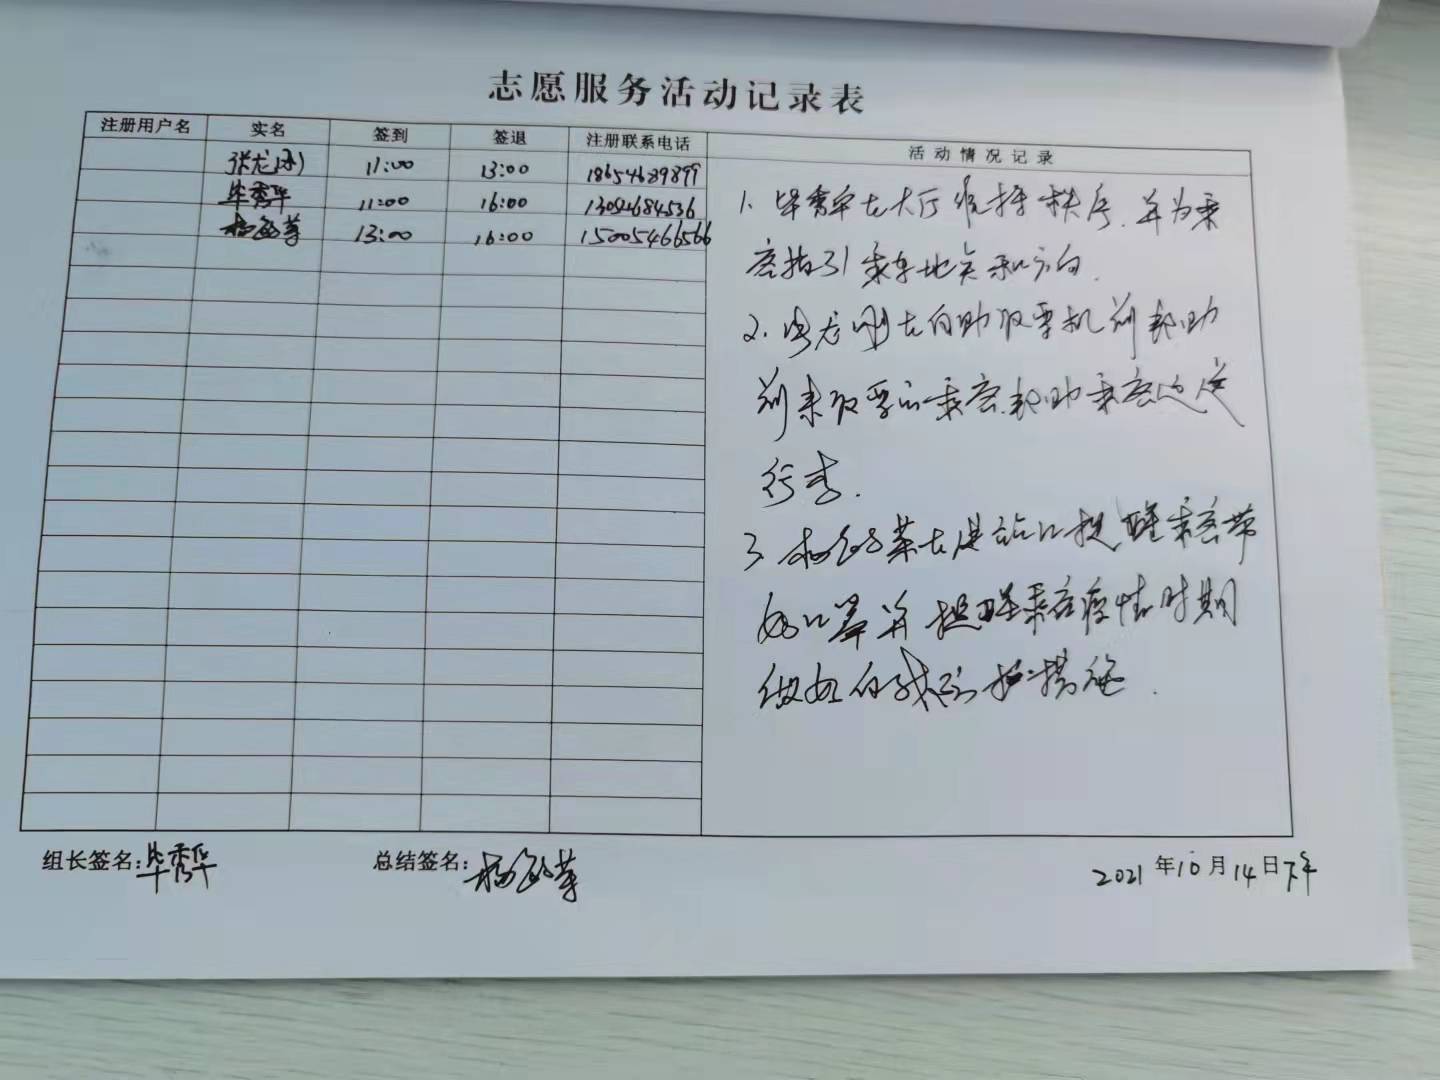 志愿服务活动记录表
注册用户名 实名 签到 签退 注册联系电话 活动情况记录
张龙刚 11:00 13:00 18654689899
毕秀华 11:00 16:00 13092684536
杨 13:00 16:00 15005466566
1. 毕秀华在大厅维持秩序.并为乘
客指引乘车地点和方向.
2. 张龙刚在自助取票机前帮助
前来取票的乘客.帮助乘客
行李.
3 杨 在进站口提醒乘客带
好口罩并提醒乘客疫情时期
做好自我防护措施.
组长签名:毕秀华 总结签名:杨
2021年10月14日下午